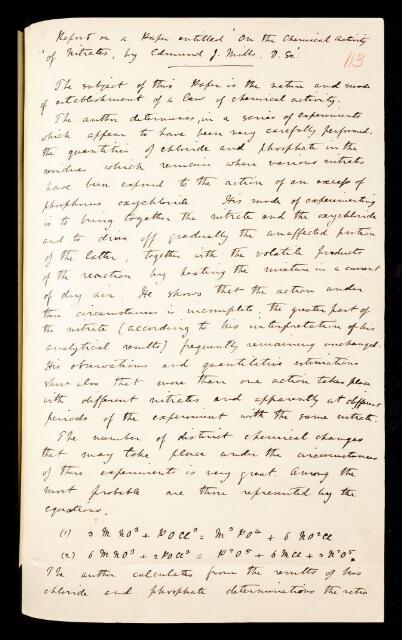 Report on a Paper entitled 'On the Chemical Activity
'of Nitrates, by Edmund J. Mills. D. Sc'.
113
The subject of this Paper is the nature and mode
of establishment of a law of chemical activity.
The author determines, in a series of experiments
which appear to have been very carefully performed,
the quantities of chloride and phosphate in the
residues which remain when various nitrates
have been exposed to the action of an excess of
phosphorus oxychloride. His mode of experimenting
is to bring together the nitrate and the oxychloride
and to drive off gradually the unaffected portion
of the latter, together with the volatile products
of the reaction by heating the mixture in a current
of dry air. He shows that the action under
these circumstances is incomplete, the greater part of
the nitrate (according to his interpretation of his
analytical results) frequently remaining unchanged.
His observations and quantitative estimations
show also that more than one action takes place
with different nitrates and apparently at different
periods of the experiment with the same nitrate.
The number of distinct chemical changes
that may take place under the circumstances
of these experiments is very great. Among the
most probable are those represented by the
equations.
(1) 3 M NO³ + POCl³ = M³PO⁴ + 
(2) 6 MNO³ + 2POCl³ = P²O⁵ + 6 MCl + 3 N²O⁵.
The author calculates from the results of his
chloride and phosphate determinations the ratio